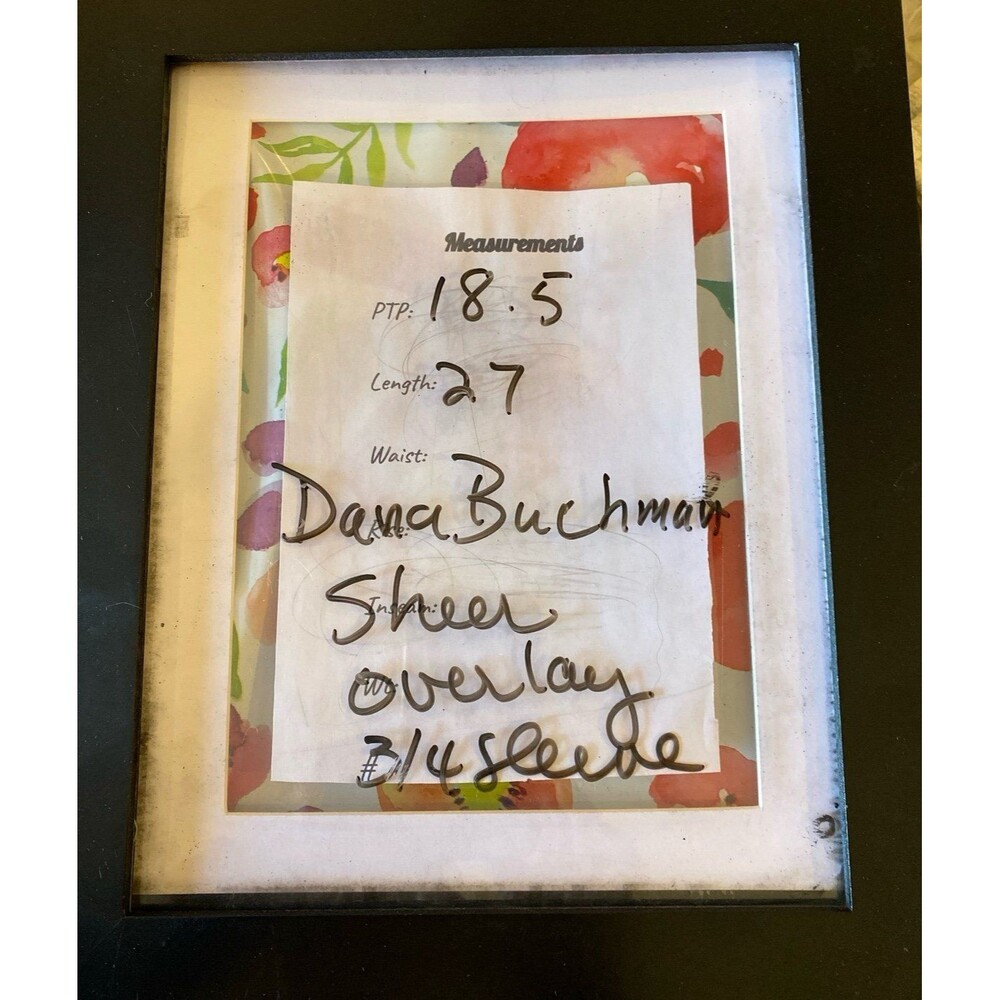 Measurements
PTP: 18.5
Length: 27
Waist:
Dana Buchman
Rise:
Sheer
Inseam:
overlay
Wt:
# 3/4 Sleeve